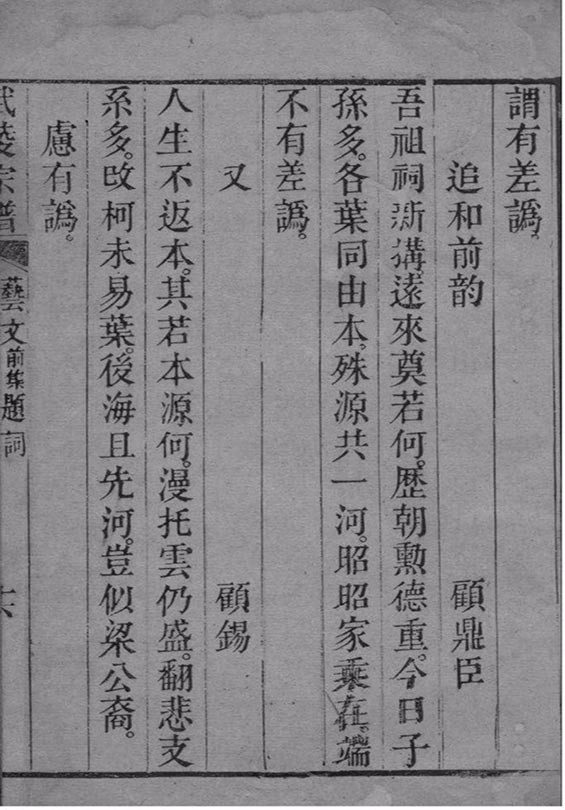 謂有差譌。
追和前韵 顧鼎臣
吾祖祠新搆。遠來奠若何。歷朝勲德重。今日子
孫多。各葉同由本。殊源共一河。昭昭家乗在。端
不有差譌。
又 顧錫
人生不返本。其若本源何。漫托雲仍盛。翻悲支
系多。改柯未易葉。後海且先河。豈似梁公裔。
慮有譌。
武陵宗譜 藝文前集題詞